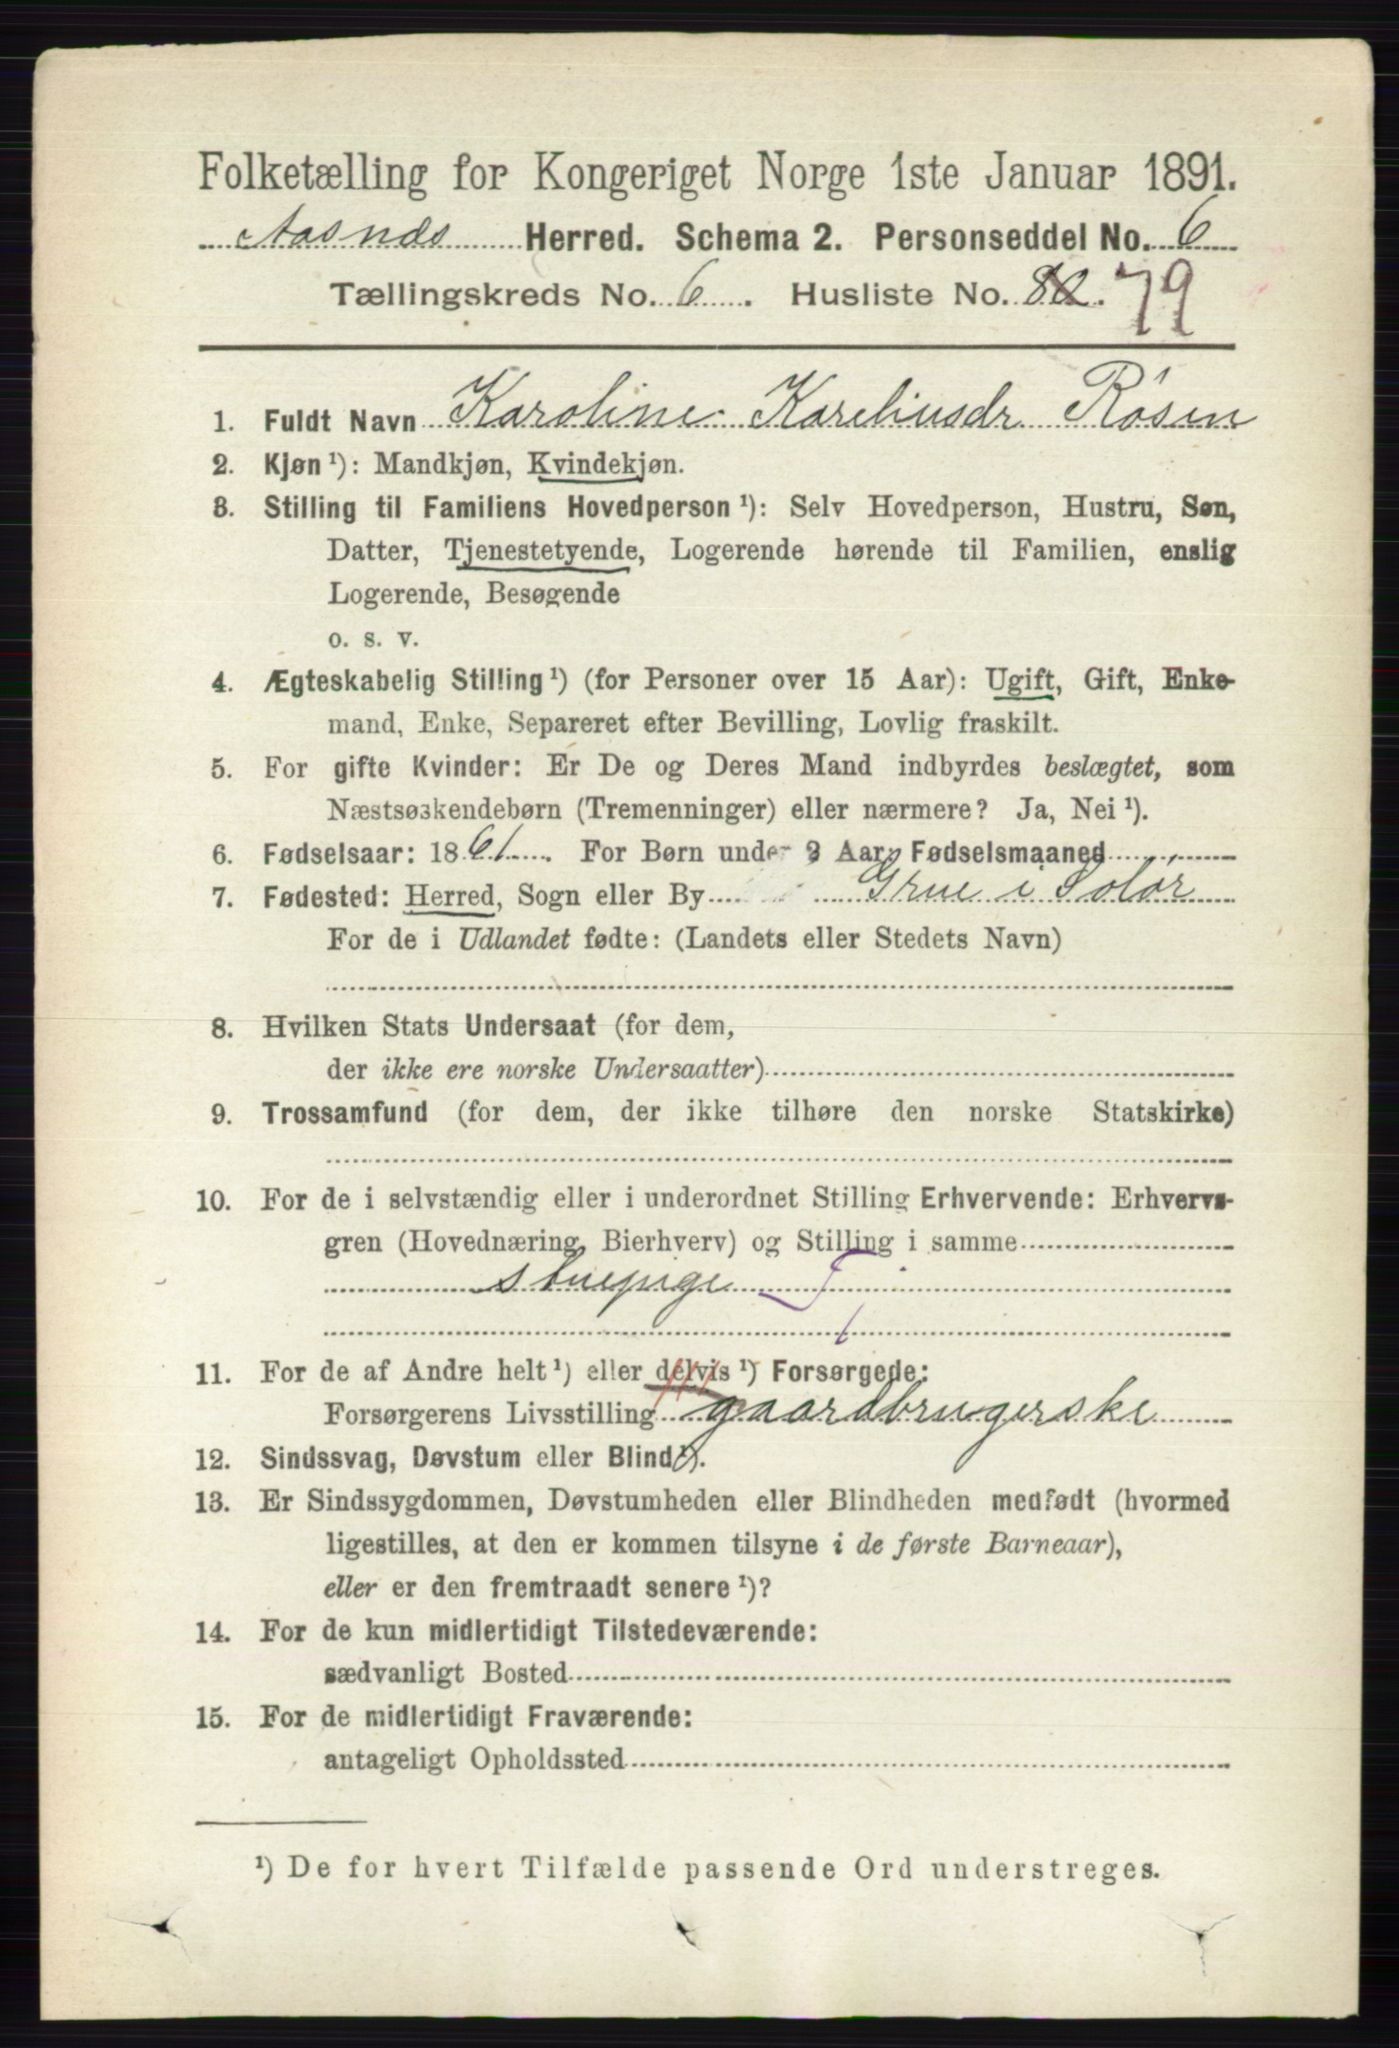 Folketælling for Kongeriget Norge 1ste Januar 1891.
Aasnes Herred. Schema 2. Personseddel No. 6
Tællingskreds No. 6. Husliste No. 80. 79
1. Fuldt Navn Karoline Kareliusdr Rösen
2. Kjøn ¹): Mandkjøn, Kvindekjøn.
3. Stilling til Familiens Hovedperson ¹): Selv Hovedperson, Hustru, Søn,
Datter, Tjenestetyende, Logerende hørende til Familien, enslig
Logerende, Besøgende
o. s. v.
4. Ægteskabelig Stilling ¹) (for Personer over 15 Aar): Ugift, Gift, Enke-
mand, Enke, Separeret efter Bevilling, Lovlig fraskilt.
5. For gifte Kvinder: Er De og Deres Mand indbyrdes beslægtet, som
Næstsøskendebørn (Tremenninger) eller nærmere? Ja, Nei ¹).
6. Fødselsaar: 1861. For Børn under 2 Aar, Fødselsmaaned
7. Fødested: Herred, Sogn eller By Grue i Solör
For de i Udlandet fødte: (Landets eller Stedets Navn)
8. Hvilken Stats Undersaat (for dem,
der ikke ere norske Undersaatter)
9. Trossamfund (for dem, der ikke tilhøre den norske Statskirke)
10. For de i selvstændig eller i underordnet Stilling Erhvervende: Erhvervs-
gren (Hovednæring, Bierhverv) og Stilling i samme
stuepige T
11. For de af Andre helt ¹) eller delvis ¹) Forsørgede:
Forsørgerens Livsstilling gaardbrugerske
12. Sindssvag, Døvstum eller Blind ¹).
13. Er Sindssygdommen, Døvstumheden eller Blindheden medfødt (hvormed
ligestilles, at den er kommen tilsyne i de første Barneaar),
eller er den fremtraadt senere ¹)?
14. For de kun midlertidigt Tilstedeværende:
sædvanligt Bosted
15. For de midlertidigt Fraværende:
antageligt Opholdssted
¹) De for hvert Tilfælde passende Ord understreges.